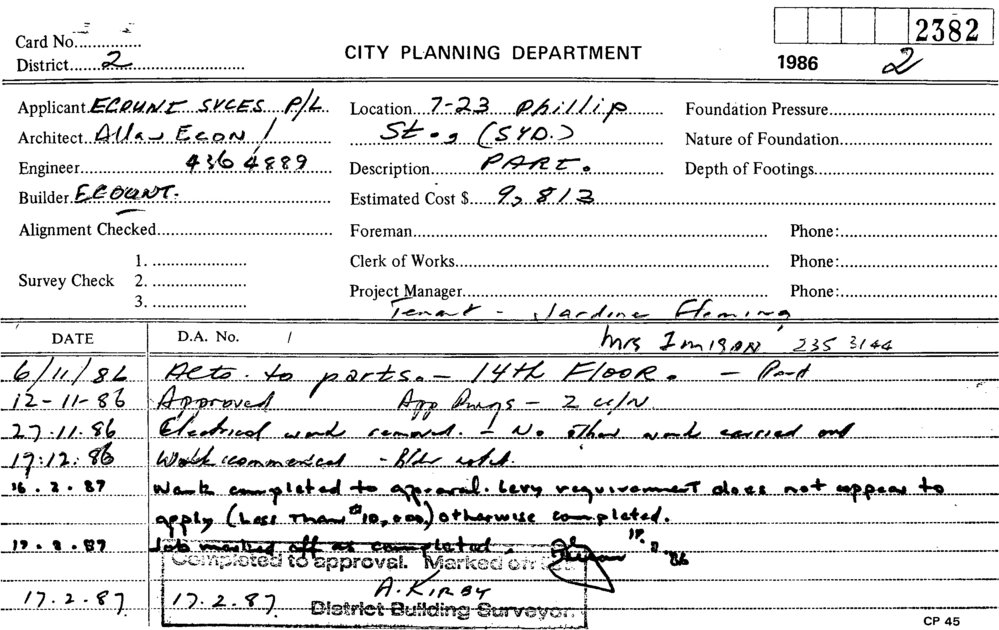 2382
Card No.
CITY PLANNING DEPARTMENT
1986 2
District 2
Applicant ECOUNT SVCES P/L Location 7-23 Phillip Foundation Pressure
Architect Allan ECON / St., (SYD.) Nature of Foundation
Engineer 436 4889 Description PART. Depth of Footings
Builder ECOUNT. Estimated Cost $ 9,813
Alignment Checked Foreman Phone:
1. Clerk of Works Phone:
Survey Check 2.
3. Project Manager Phone:
Tenant - Jardine Fleming
DATE D.A. No. / Mrs 235 3144
6/11/86 Alts. to parts. - 14th FLOOR. - Part
12-11-86 Approved App Dwgs - 2
27.11.86 Electrical work removed. - No other work carried out
17.12.86 Work commenced - Bldr
16.2.87 Work completed to approval. Levy requirement does not appear to
apply (Less Than $10,000) otherwise completed.
Job marked off as completed.
Completed to approval. Marked off
A. KIRBY
17.2.87 17.2.87 District Building Surveyor.
CP 45